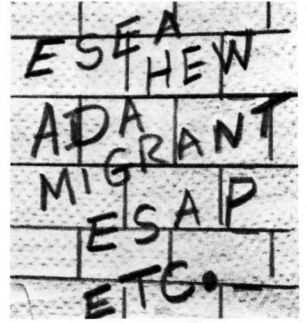 ESEA
HEW
ADA
MIGRANT
ESAP
ETC.